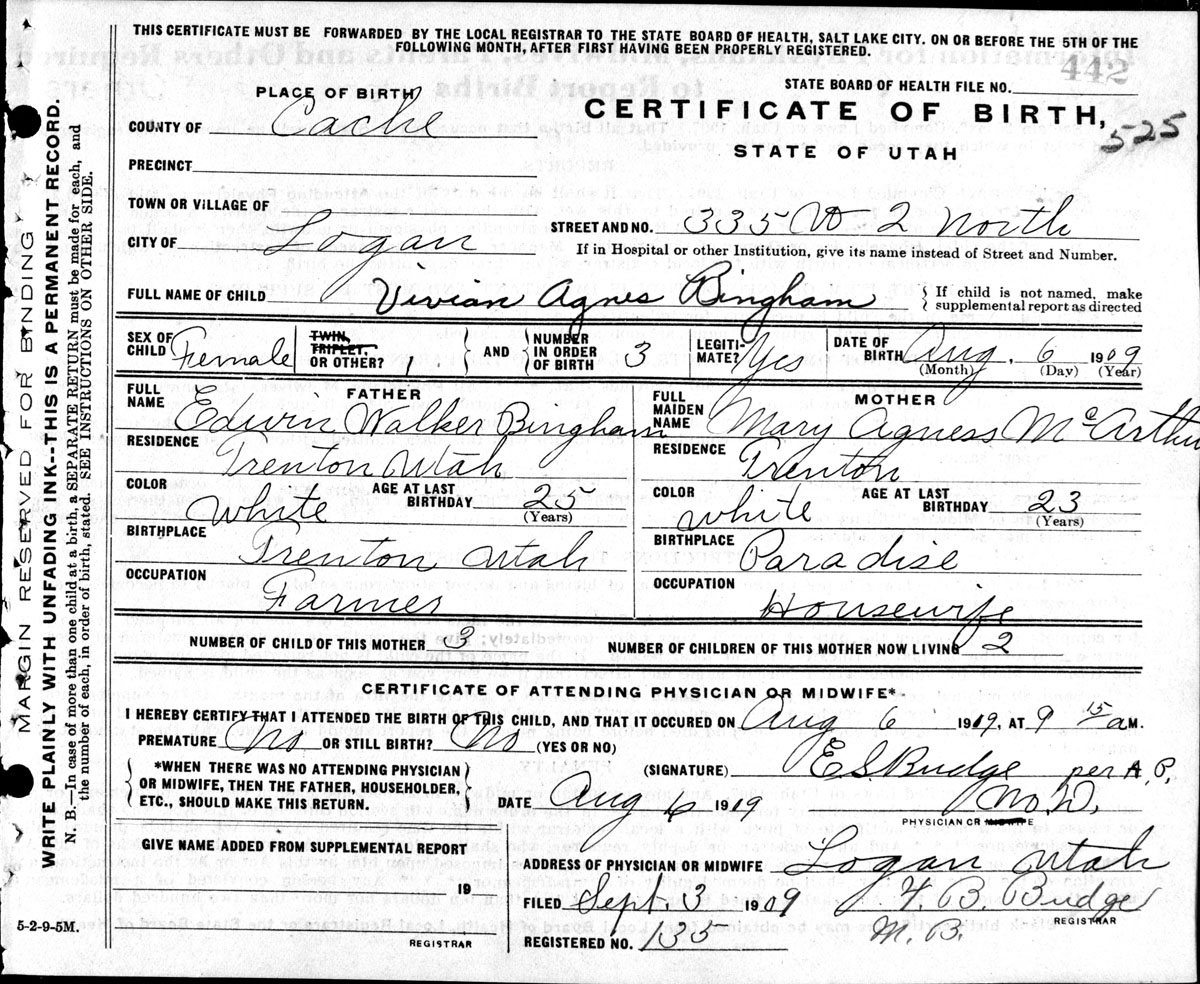 THIS CERTIFICATE MUST BE FORWARDED BY THE LOCAL REGISTRAR TO THE STATE BOARD OF HEALTH, SALT LAKE CITY, ON OR BEFORE THE 5TH OF THE
FOLLOWING MONTH, AFTER FIRST HAVING BEEN PROPERLY REGISTERED.
442
STATE BOARD OF HEALTH FILE NO.
PLACE OF BIRTH
CERTIFICATE OF BIRTH,
525
COUNTY OF Cache
STATE OF UTAH
PRECINCT
TOWN OR VILLAGE OF
STREET AND NO. 335 W 2 North
CITY OF Logan
If in Hospital or other Institution, give its name instead of Street and Number.
FULL NAME OF CHILD Vivian Agnes Bingham
If child is not named, make
supplemental report as directed
SEX OF CHILD Female
TWIN, TRIPLET, OR OTHER? 1
AND NUMBER IN ORDER OF BIRTH 3
LEGITI-MATE? Yes
DATE OF BIRTH Aug. 6 1909
(Month) (Day) (Year)
FATHER
FULL NAME Edwin Walker Bingham
RESIDENCE Trenton Utah
COLOR White AGE AT LAST BIRTHDAY 25
(Years)
BIRTHPLACE Trenton Utah
OCCUPATION Farmer
MOTHER
FULL MAIDEN NAME Mary Agness McArthur
RESIDENCE Trenton
COLOR white AGE AT LAST BIRTHDAY 23
(Years)
BIRTHPLACE Paradise
OCCUPATION Housewife
NUMBER OF CHILD OF THIS MOTHER 3 NUMBER OF CHILDREN OF THIS MOTHER NOW LIVING 2
CERTIFICATE OF ATTENDING PHYSICIAN OR MIDWIFE*
I HEREBY CERTIFY THAT I ATTENDED THE BIRTH OF THIS CHILD, AND THAT IT OCCURED ON Aug 6 1909, AT 9 15 a M.
PREMATURE No OR STILL BIRTH? No (YES OR NO)
*WHEN THERE WAS NO ATTENDING PHYSICIAN
OR MIDWIFE, THEN THE FATHER, HOUSEHOLDER,
ETC., SHOULD MAKE THIS RETURN.
(SIGNATURE) E S Budge per A. P.
M.D.
DATE Aug 6 1909
PHYSICIAN OR MIDWIFE
GIVE NAME ADDED FROM SUPPLEMENTAL REPORT
19
REGISTRAR
ADDRESS OF PHYSICIAN OR MIDWIFE Logan Utah
FILED Sept. 3 1909 B Budge
REGISTRAR
M. B.
REGISTERED NO. 135
5-2-9-5M.
MARGIN RESERVED FOR BINDING
WRITE PLAINLY WITH UNFADING INK--THIS IS A PERMANENT RECORD.
N. B.--In case of more than one child at a birth, a SEPARATE RETURN must be made for each, and
the number of each, in order of birth, stated. SEE INSTRUCTIONS ON OTHER SIDE.